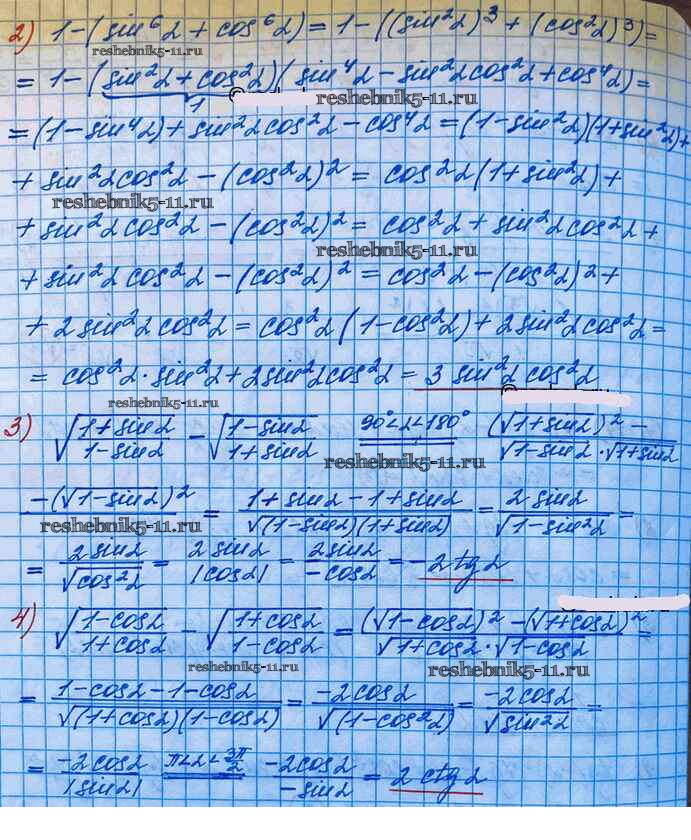 2) 1-(sin⁶α + cos⁶α) = 1-((sin²α)³ + (cos²α)³) =
reshebnik5-11.ru
= 1-(sin²α + cos²α)(sin⁴α - sin²α cos²α + cos⁴α) =
1
reshebnik5-11.ru
= (1-sin⁴α) + sin²α cos²α - cos⁴α = (1-sin²α)(1+sin²α) +
+ sin²α cos²α - (cos²α)² = cos²α (1+sin²α) +
reshebnik5-11.ru
+ sin²α cos²α - (cos²α)² = cos²α + sin²α cos²α +
reshebnik5-11.ru
+ sin²α cos²α - (cos²α)² = cos²α - (cos²α)² +
+ 2 sin²α cos²α = cos²α (1-cos²α) + 2 sin²α cos²α =
= cos²α · sin²α + 2 sin²α cos²α = 3 sin²α cos²α
reshebnik5-11.ru
3) √((1+sinα)/(1-sinα)) - √((1-sinα)/(1+sinα)) 90°<α<180° = (√(1+sinα))² - / √(1-sinα) · √(1+sinα)
-(√(1-sinα))² = (1+sinα-1+sinα)/√((1-sinα)(1+sinα)) = 2sinα/√(1-sin²α) =
reshebnik5-11.ru
= 2sinα/√(cos²α) = 2sinα/|cosα| = 2sinα/(-cosα) = -2tgα
4) √((1-cosα)/(1+cosα)) - √((1+cosα)/(1-cosα)) = ((√(1-cosα))² - (√(1+cosα))²)/(√(1+cosα) · √(1-cosα)) =
reshebnik5-11.ru
reshebnik5-11.ru
= (1-cosα-1-cosα)/√((1+cosα)(1-cosα)) = -2cosα/√(1-cos²α) = -2cosα/√(sin²α) =
= -2cosα/|sinα| π<α<3π/2 = -2cosα/(-sinα) = 2ctgα